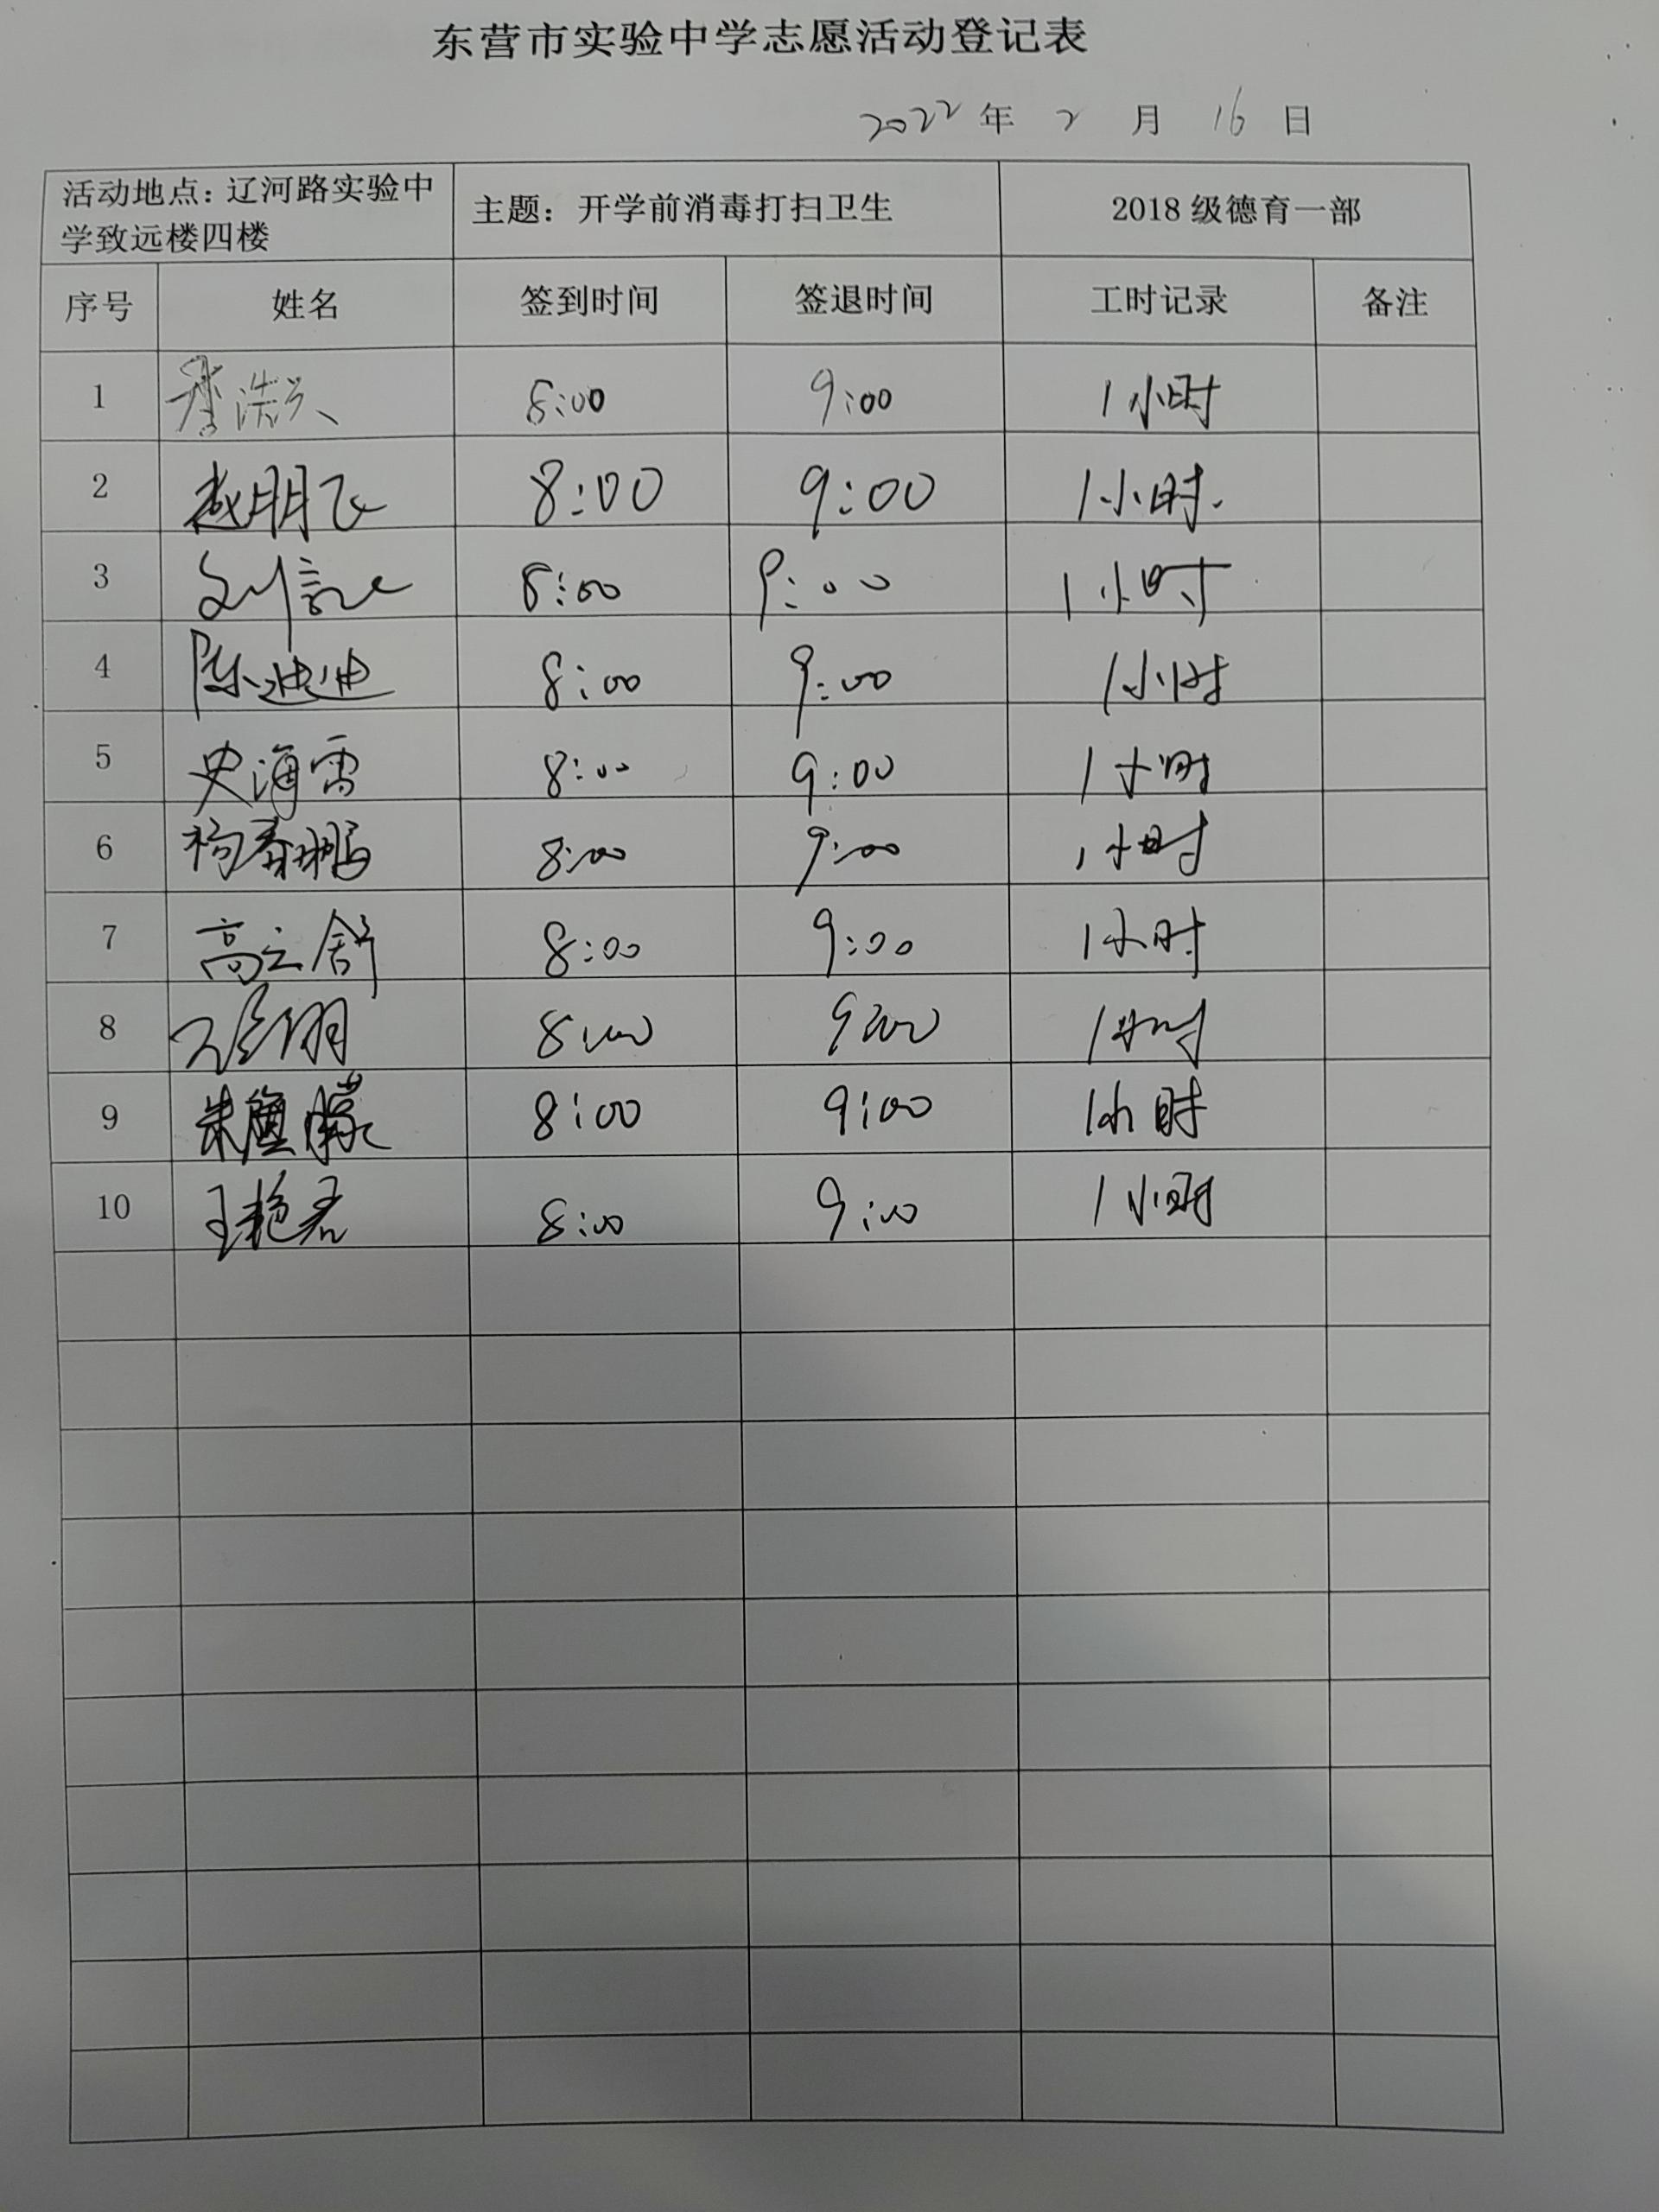 东营市实验中学志愿活动登记表
2022 年 2 月 16 日
活动地点：辽河路实验中
学致远楼四楼
主题：开学前消毒打扫卫生
2018 级德育一部
序号 姓名 签到时间 签退时间 工时记录 备注
1 8:00 9:00 1小时
2 赵朋飞 8:00 9:00 1小时.
3 8:00 9:00 1小时
4 陈迪迪 8:00 9:00 1小时
5 史海雷 8:00 9:00 1小时
6 杨春鹏 8:00 9:00 1小时
7 高立舒 8:00 9:00 1小时
8 8:00 9:00 1小时
9 8:00 9:00 1小时
10 王艳君 8:00 9:00 1小时